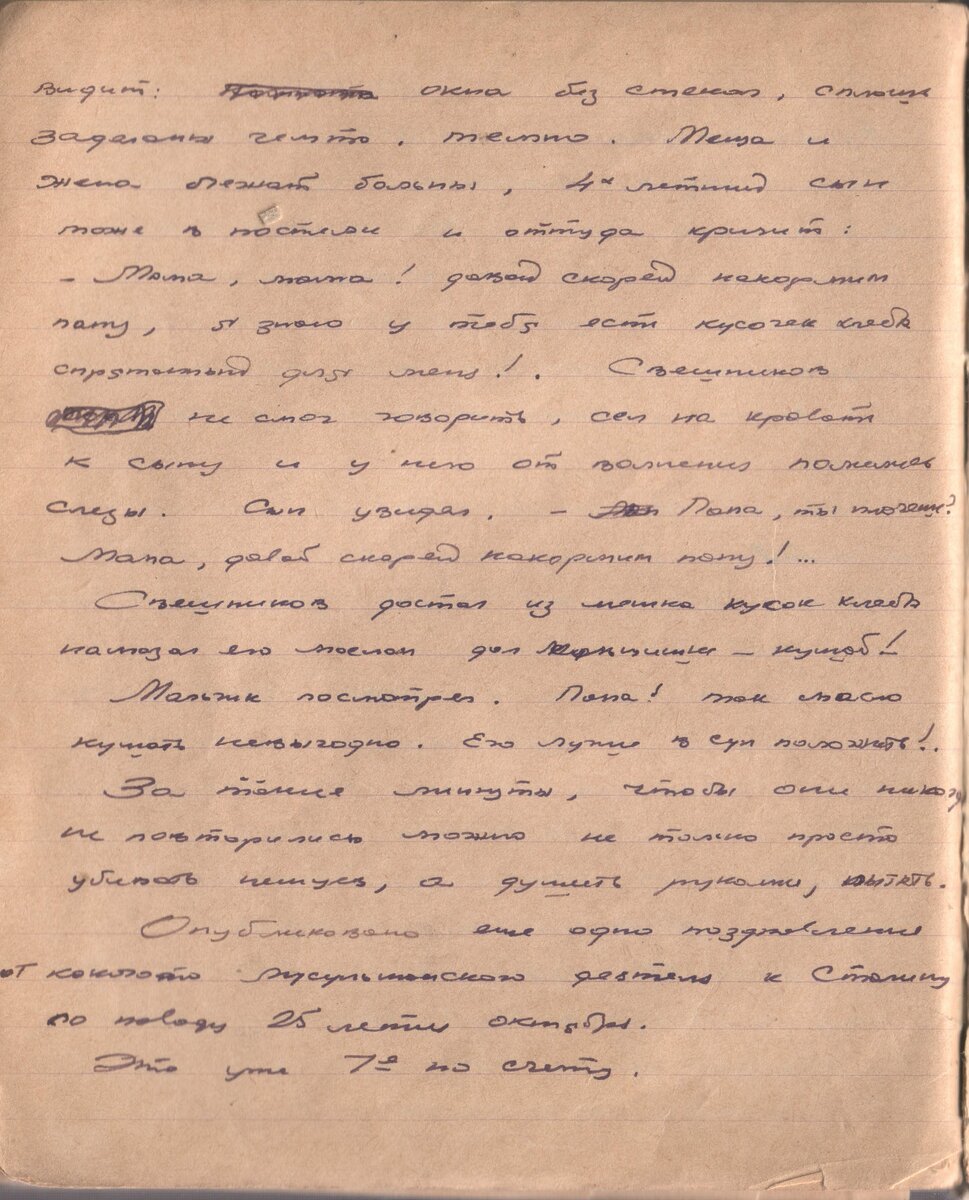 видит: окна без стекол, сплошь
заделаны чем то, темно. Теща и
жена лежат больны, 4х летний сын
тоже в постели и оттуда кричит:
- Мама, мама! давай скорей накормим
папу, я знаю у тебя есть кусочек хлеба
спрятаный для меня!. Свешников
не смог говорить, сел на кровать
к сыну и у него от волнения полились
слезы. Сын увидел. - Папа, ты плачешь?
Мама, давай скорей накормим папу!...
Свешников достал из мешка кусок хлеба
намазал его маслом дал - кушай!
Мальчик посмотрел. Папа! так масло
кушать невыгодно. Его лучше в суп положить!.
За такие минуты, чтобы они никогда
не повторились можно не только просто
убивать немцев, а душить руками, пытать.
Опубликовано еще одно поздравление
от какого то мусульманского деятеля к Сталину
по поводу 25 летия октября.
Это уже 7е по счету.